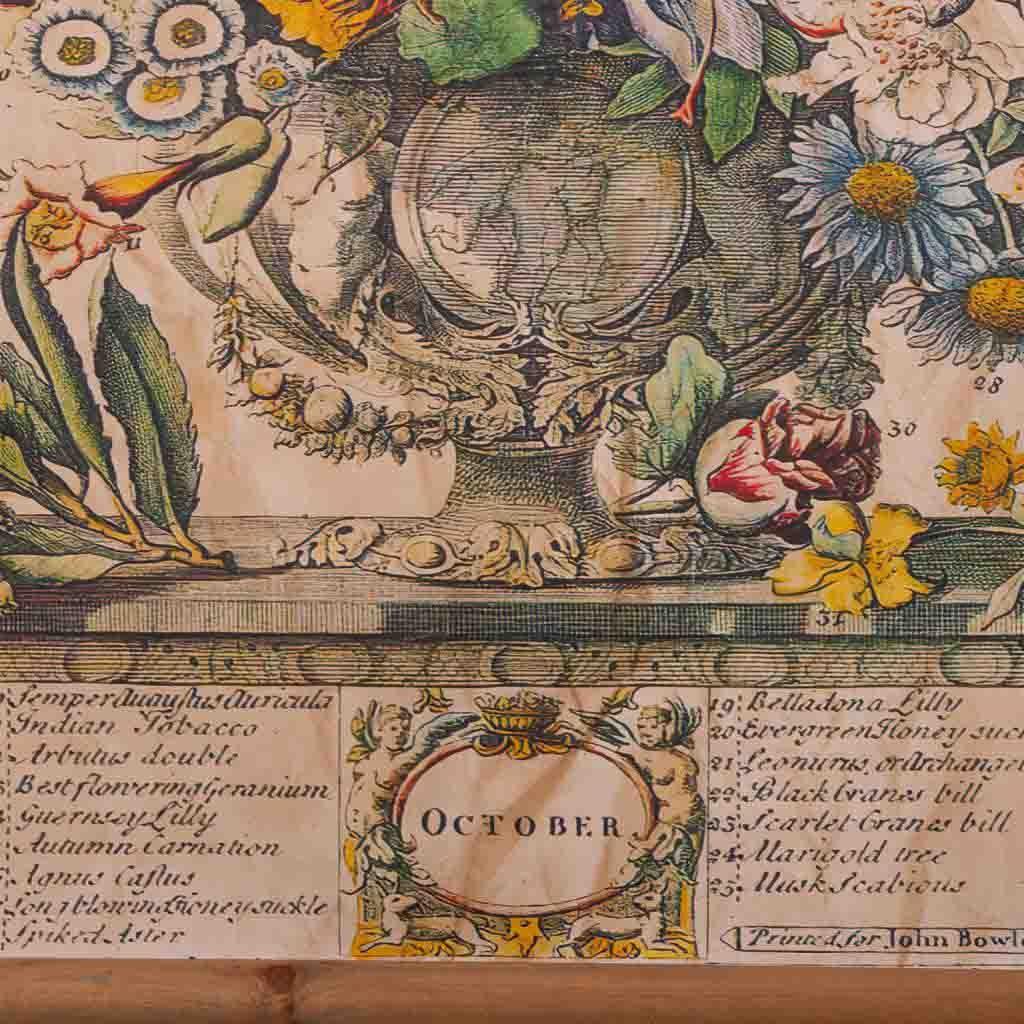 11
28
30
31
Semper Augustus Auricula
Indian Tobacco
Arbutus double
Best flowering Geranium
Guernsey Lilly
Autumn Carnation
Agnus Castus
Long blowing Honeysuckle
Spiked Aster
OCTOBER
19 Belladona Lilly
20 Evergreen Honey suc
21 Leonurus, or Archangel
22 Black Cranes bill
23 Scarlet Cranes bill
24 Marigold tree
25 Musk Scabious
Printed for John Bowl